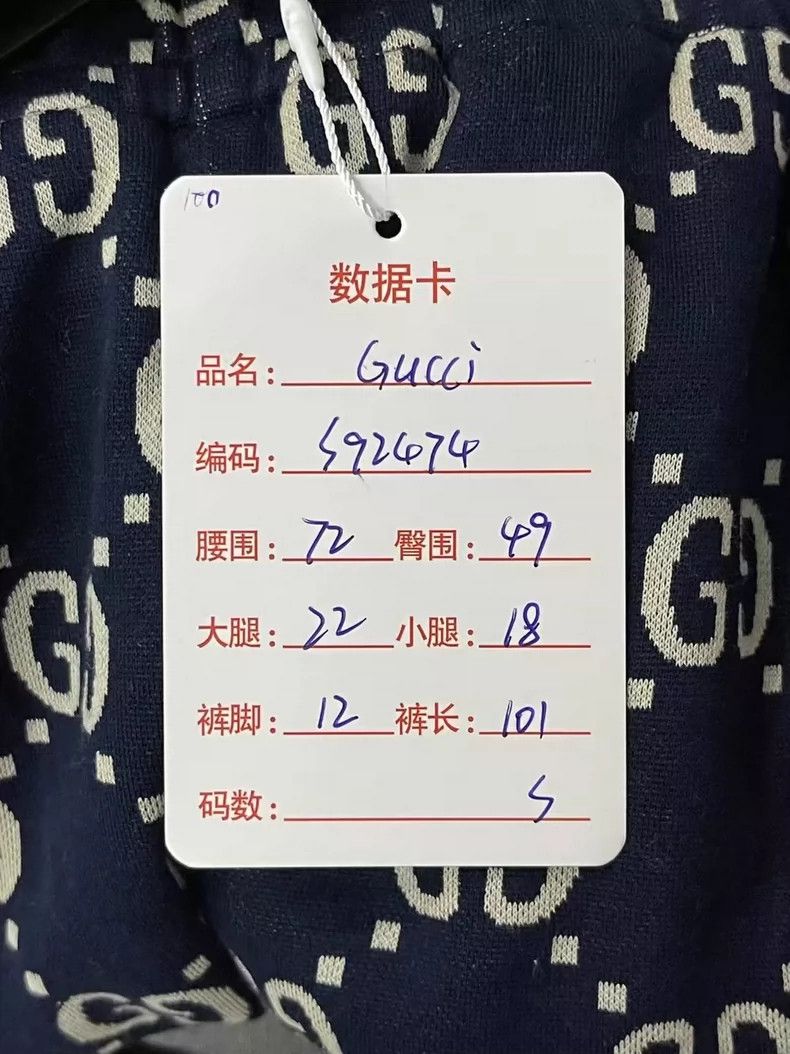 100
数据卡
品名: Gucci
编码: S92474
腰围: 72 臀围: 49
大腿: 22 小腿: 18
裤脚: 12 裤长: 101
码数: S